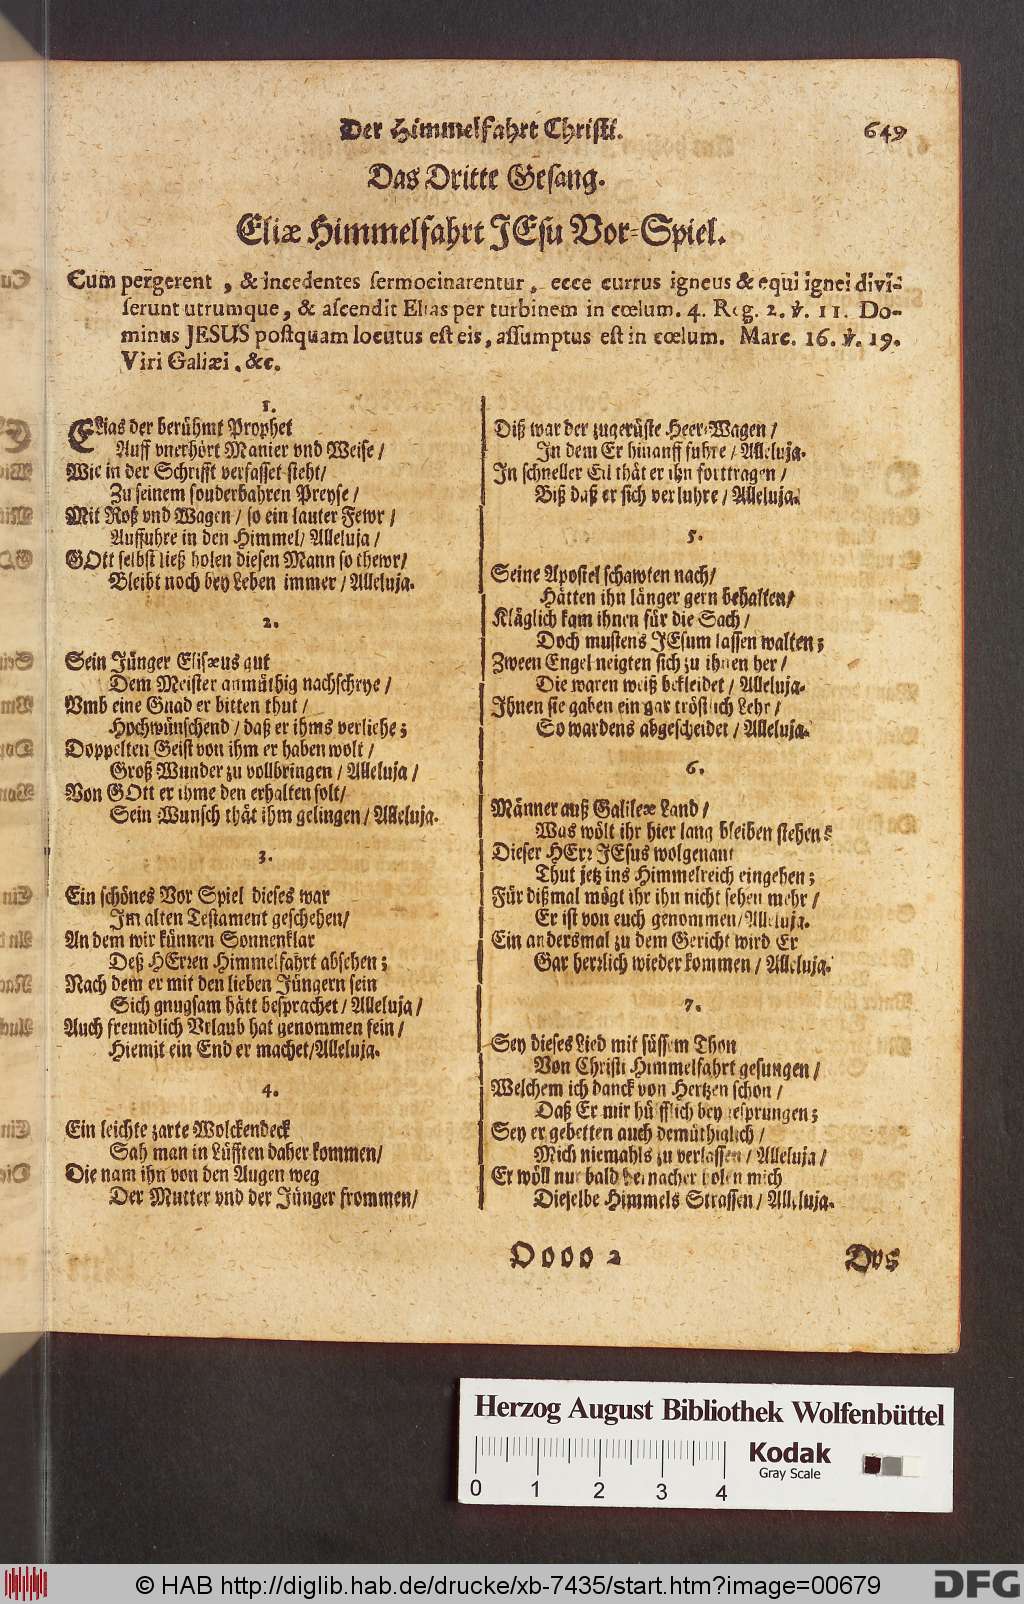 Der Himmelfahrt Christi. 649
Das Dritte Gesang.
Eliæ Himmelfahrt JEsu Vor-Spiel.
Cum per̃gerent, & incedentes sermocinarentur, ecce currus igneus & equi ignei divi-
serunt utrumque, & ascendit Elias per turbinem in cœlum. 4. Reg. 2. ℣. 11. Do-
minus JESUS postquam locutus est eis, assumptus est in cœlum. Marc. 16. ℣. 19.
Viri Galilæi, &c.
1.
ELias der berühmt Prophet
Auff vnerhört Manier vnd Weise /
Wie in der Schrifft verfasset steht/
Zu seinem sonderbahren Preyse /
Mit Roß vnd Wagen / so ein lauter Fewr /
Auffuhre in den Himmel/ Alleluja /
GOtt selbst ließ holen diesen Mann so thewr/
Bleibt noch bey Leben immer / Alleluja.
2.
Sein Jünger Elisæus gut
Dem Meister anmüthig nachschrye /
Vmb eine Gnad er bitten thut /
Hochwünschend / daß er ihms verliche;
Doppelten Geist von ihm er haben wolt /
Groß Wunder zu vollbringen / Alleluja /
Von GOtt er ihme den erhalten solt/
Sein Wunsch thät ihm gelingen / Alleluja.
3.
Ein schönes Vor Spiel dieses war
Im alten Testament geschehen/
An dem wir künnen Sonnenklar
Deß HErren Himmelfahrt absehen;
Nach dem er mit den lieben Jüngern sein
Sich gnugsam hätt besprachet / Alleluja /
Auch freundlich Vrlaub hat genommen fein /
Hiemit ein End er machet/Alleluja.
4.
Ein leichte zarte Wolckendeck
Sah man in Lüfften daher kommen/
Die nam ihn von den Augen weg
Der Mutter vnd der Jünger frommen/
Diß war der zugerüste Heer-Wagen /
In dem Er hinauff fuhre / Alleluja.
In schneller Eil thät er ihn forttragen /
Biß daß er sich verluhre / Alleluja.
5.
Seine Apostel schawten nach/
Hätten ihn länger gern behalten/
Kläglich kam ihnen für die Sach /
Doch mustens JEsum lassen walten;
Zween Engel neigten sich zu ihnen her /
Die waren weiß bekleidet / Alleluja.
Ihnen sie gaben ein gar tröstlich Lehr /
So wardens abgescheidet / Alleluja.
6.
Männer auß Galileæ Land /
Was wölt ihr hier lang bleiben stehen?
Dieser HErr JEsus wolgenant
Thut jetz ins Himmelreich eingehen;
Für dißmal mögt ihr ihn nicht sehen mehr /
Er ist von euch genommen/Alleluja.
Ein andersmal zu dem Gericht wird Er
Gar herrlich wieder kommen / Alleluja.
7.
Sey dieses Lied mit süssem Thon
Von Christi Himmelfahrt gesungen /
Welchem ich danck von Hertzen schon /
Daß Er mir hülfflich beygesprungen;
Sey er gebetten auch demüthiglich /
Mich niemahls zu verlassen / Alleluja /
Er wöll nur bald hernacher holen mich
Dieselbe Himmels Strassen / Alleluja.
Oooo 2 Das
Herzog August Bibliothek Wolfenbüttel
Kodak
Gray Scale
0 1 2 3 4
© HAB http://diglib.hab.de/drucke/xb-7435/start.htm?image=00679
DFG